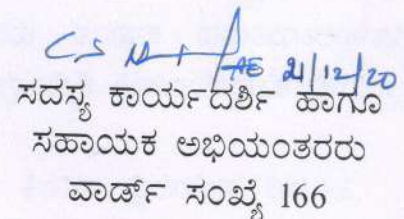 AE 21/12/20
ಸದಸ್ಯ ಕಾರ್ಯದರ್ಶಿ ಹಾಗೂ
ಸಹಾಯಕ ಅಭಿಯಂತರರು
ವಾರ್ಡ್ ಸಂಖ್ಯೆ 166